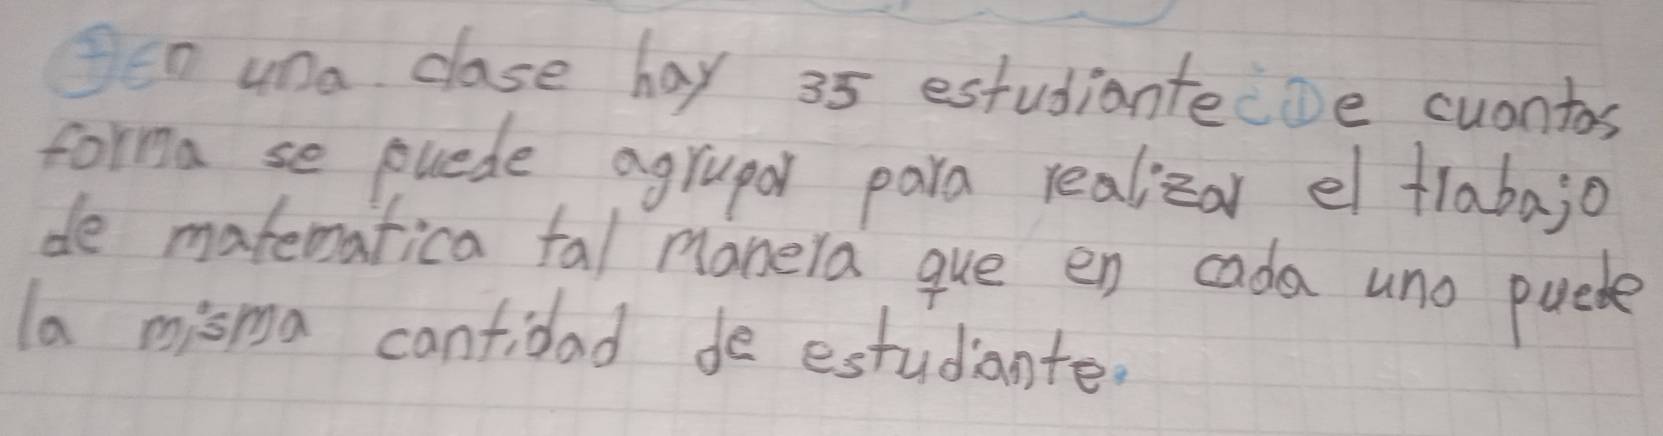 En una clase hay 35 estudiante ¿De cuantas
forma se puede agrupar para realizar el trabajo
de matematica tal manera que en cada uno puede
la misma cantidad de estudiante.